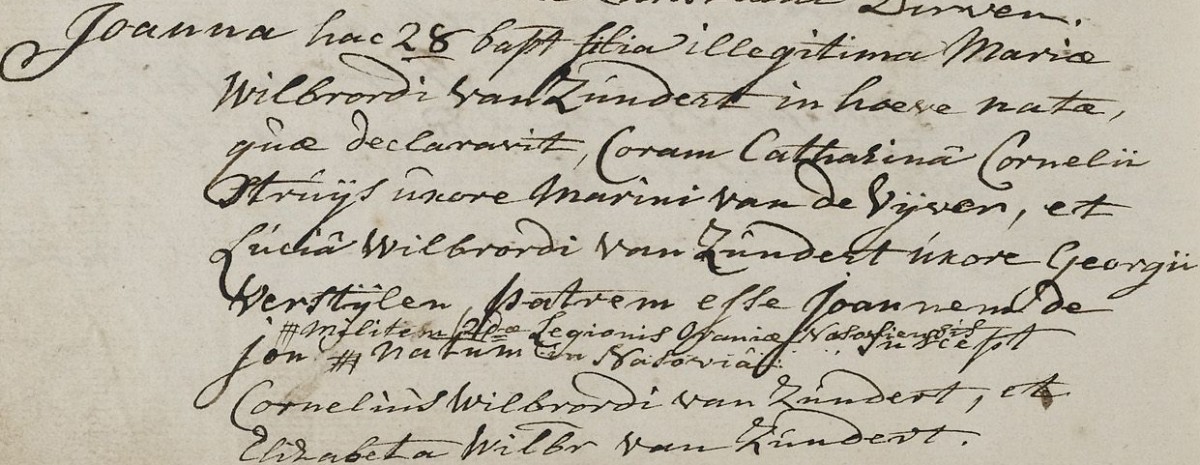 Dirven.
Joanna hac 28 bapt filia illegitima Mariæ
Wilbrordi van Zundert in hoeve natæ,
quæ declaravit, Coram Catharinâ Cornelii
Struijs uxore Marini van de Vijver, et
Luciâ Wilbrordi van Zundert uxore Georgii
Verstijlen, patrem esse Joannem de
# Militem 2dæ Legionis Oraniæ Nasoviensis
jon # natum in Nasoviâ: suscept
Cornelius Wilbrordi van Zundert, et
Elizabeta Wilbr van Zundert.